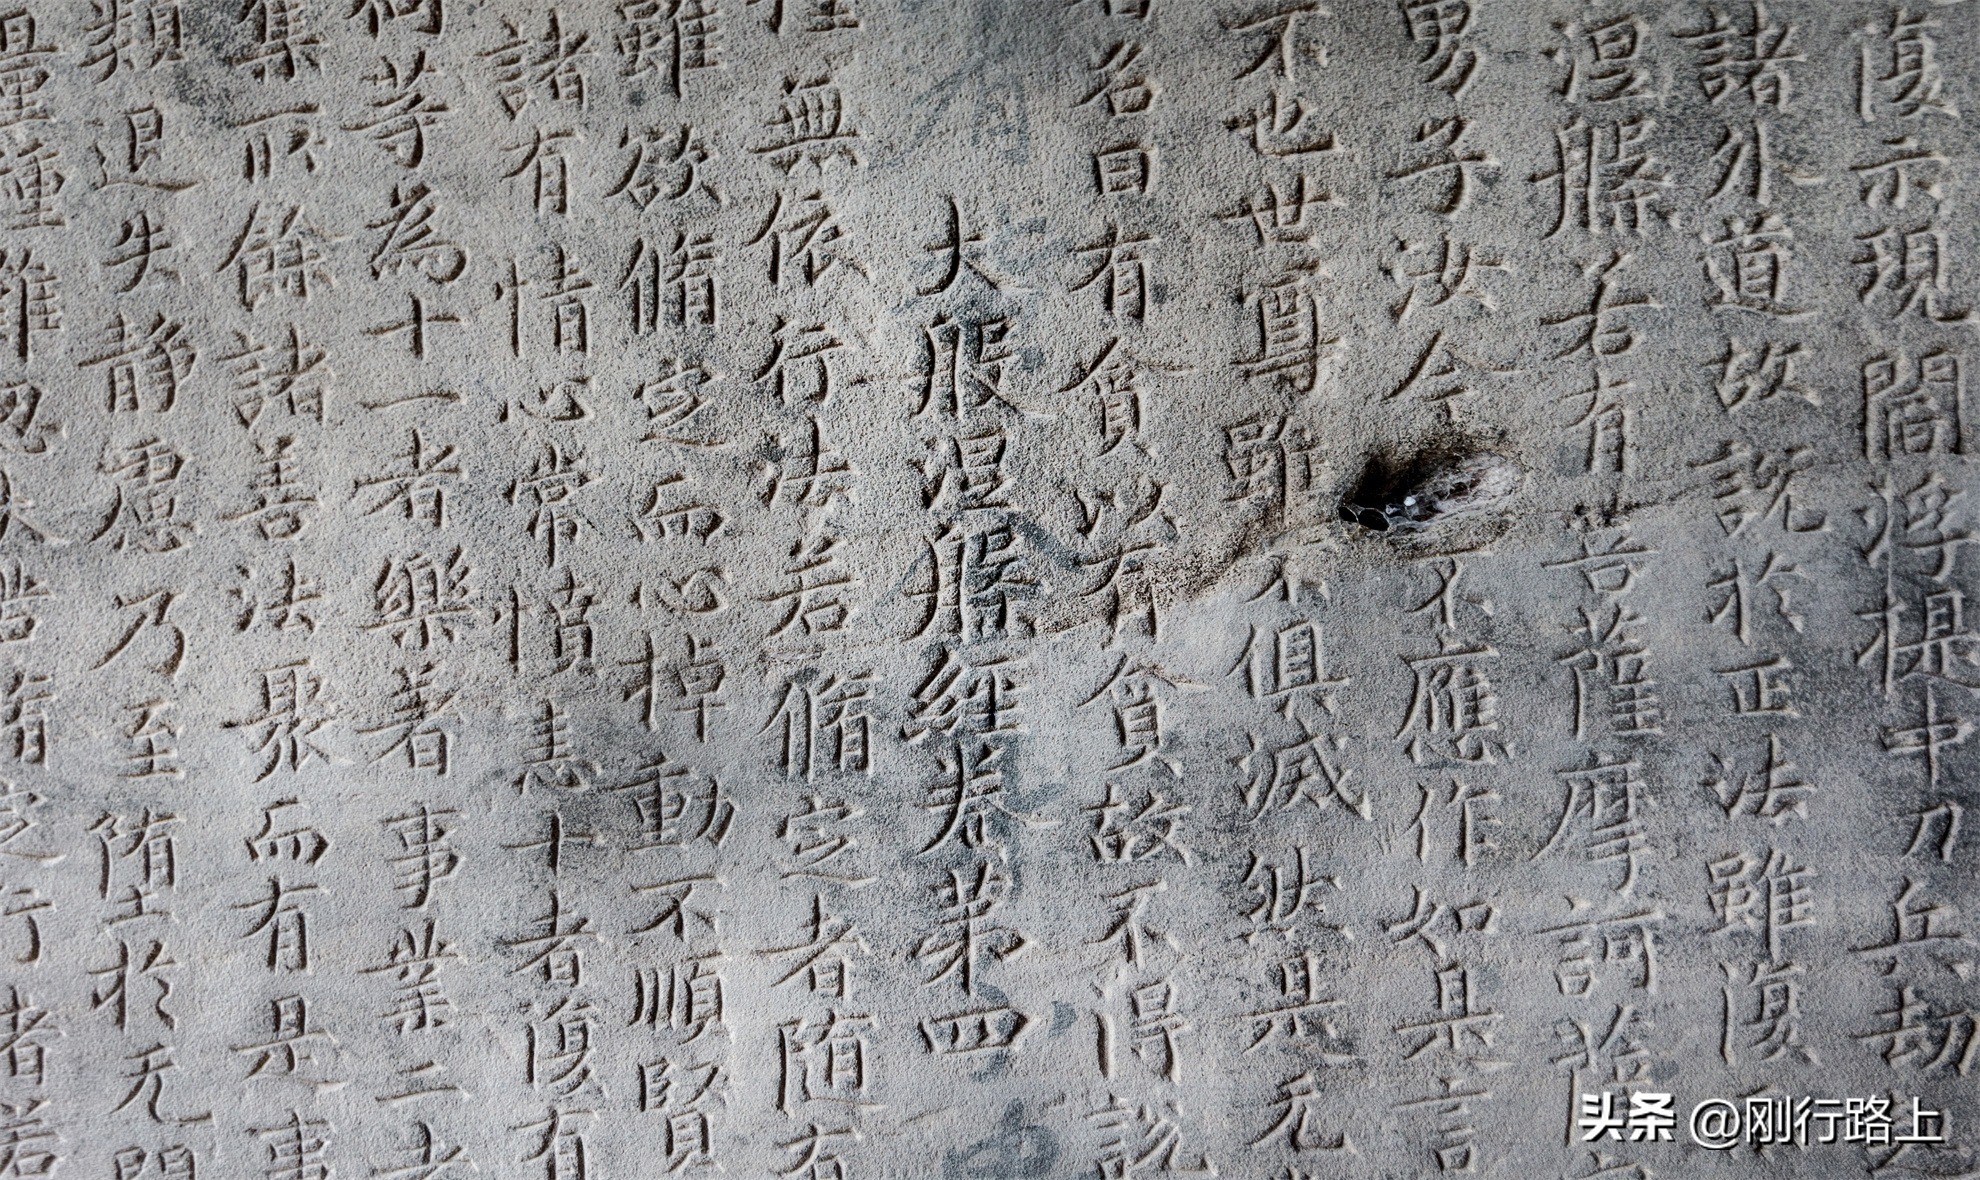 復示現閻浮提中刀兵劫
諸外道故說於正法雖復
涅槃若有菩薩摩訶薩
男子汝今不應作如是言
不也世尊雖不俱滅然是无
名曰有貪以有貪故不得說
大般涅槃經卷第四
無依行法若脩定者隨有
雖欲脩定而心掉動不順賢
諸有情心常憤恚十者復有
何等為十一者樂著事業二者
集所餘諸善法聚而有是事
類退失靜慮乃至墮於无間
量種雖脩定行者若
头条 @刚行路上